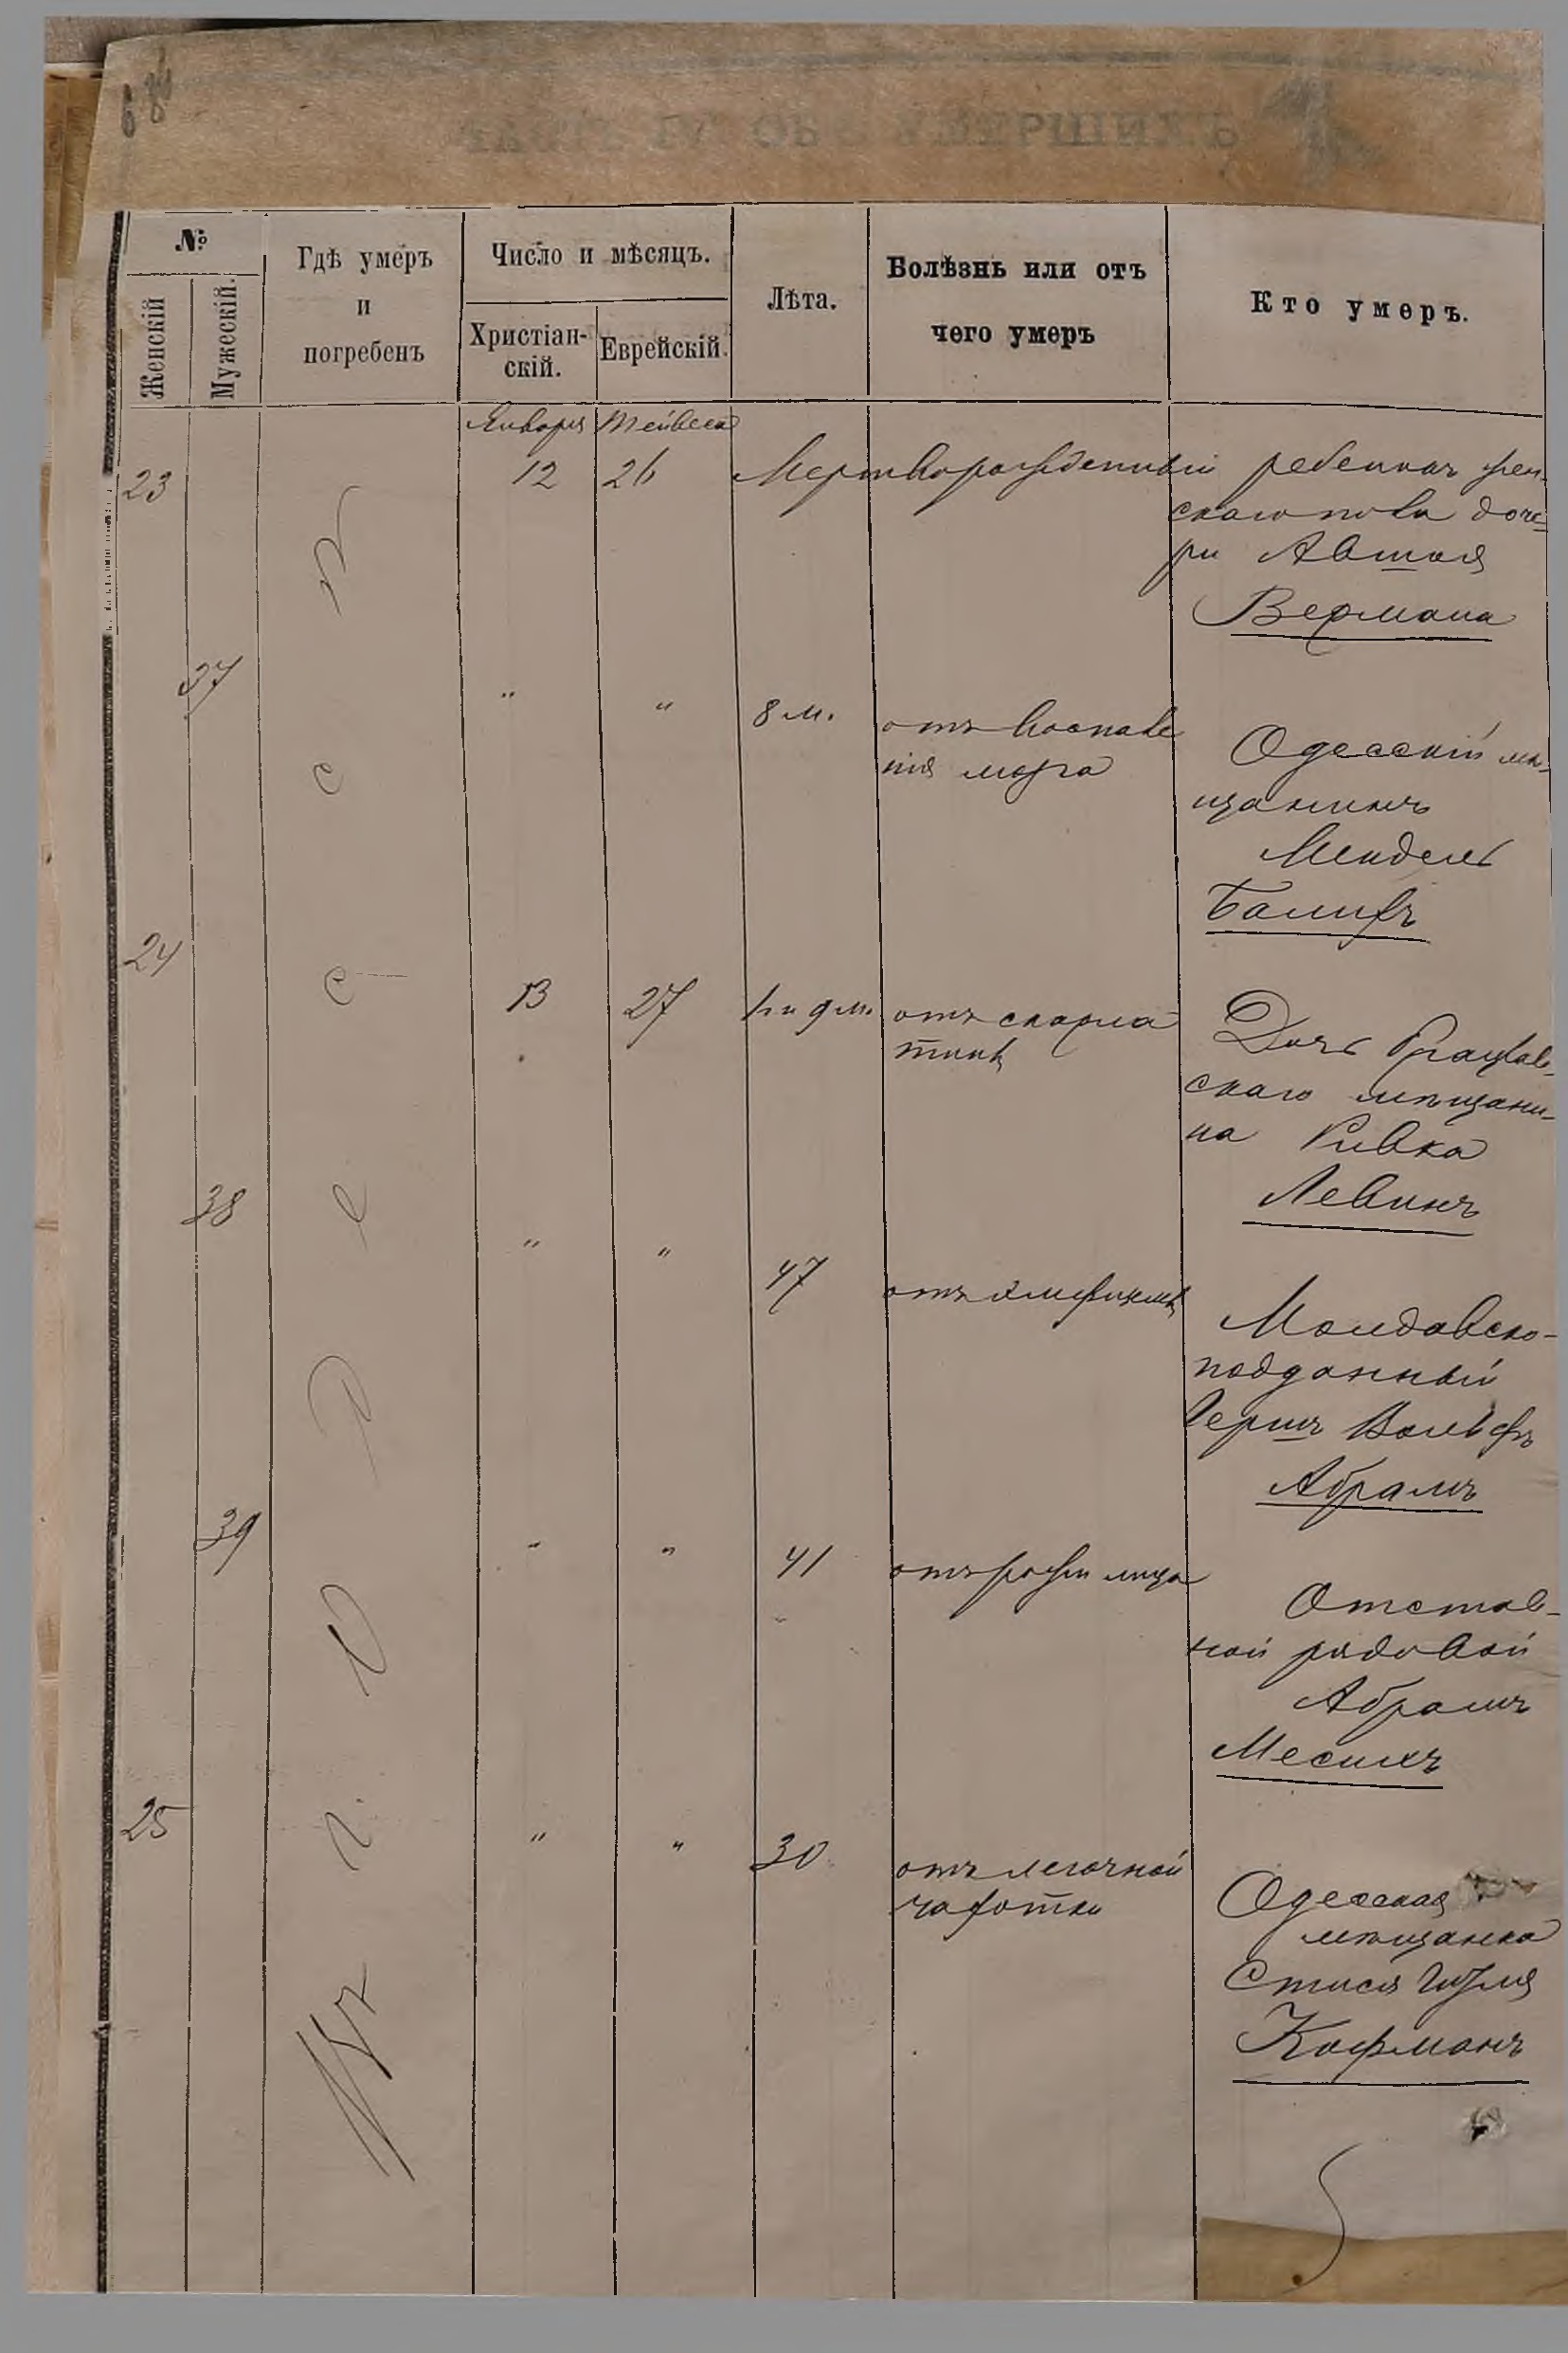 ЧАСТЬ IV. ОБЪ УМЕРШИХЪ
№
Женскій
Мужескій.
Гдѣ умеръ
и
погребенъ
Число и мѣсяцъ.
Христіан-
скій.
Еврейскій.
Лѣта.
Болѣзнь или отъ
чего умеръ
Кто умеръ.
Въ г. Одессѣ
Января
12 26 Мертворожденный ребенокъ жен-
23
скаго пола доче-
ри
Вермана
37
" " 8 м. отъ воспале
нія мозга
Одесскій мѣ-
щанинъ
Мендель
24
13 27 1 г. и 9 м. отъ скарла
тины
Дочь
скаго мѣщани-
на Ривка
Левинъ
38
" " 47
отъ
Молдавско-
подданный
Гершъ Вольфъ
Абрамъ
39
" " 41 отъ рожи лица
Отстав-
ной рядовой
Абрамъ
25
" " 30 отъ легочной
чахотки
Одесская
мѣщанка
Кофманъ